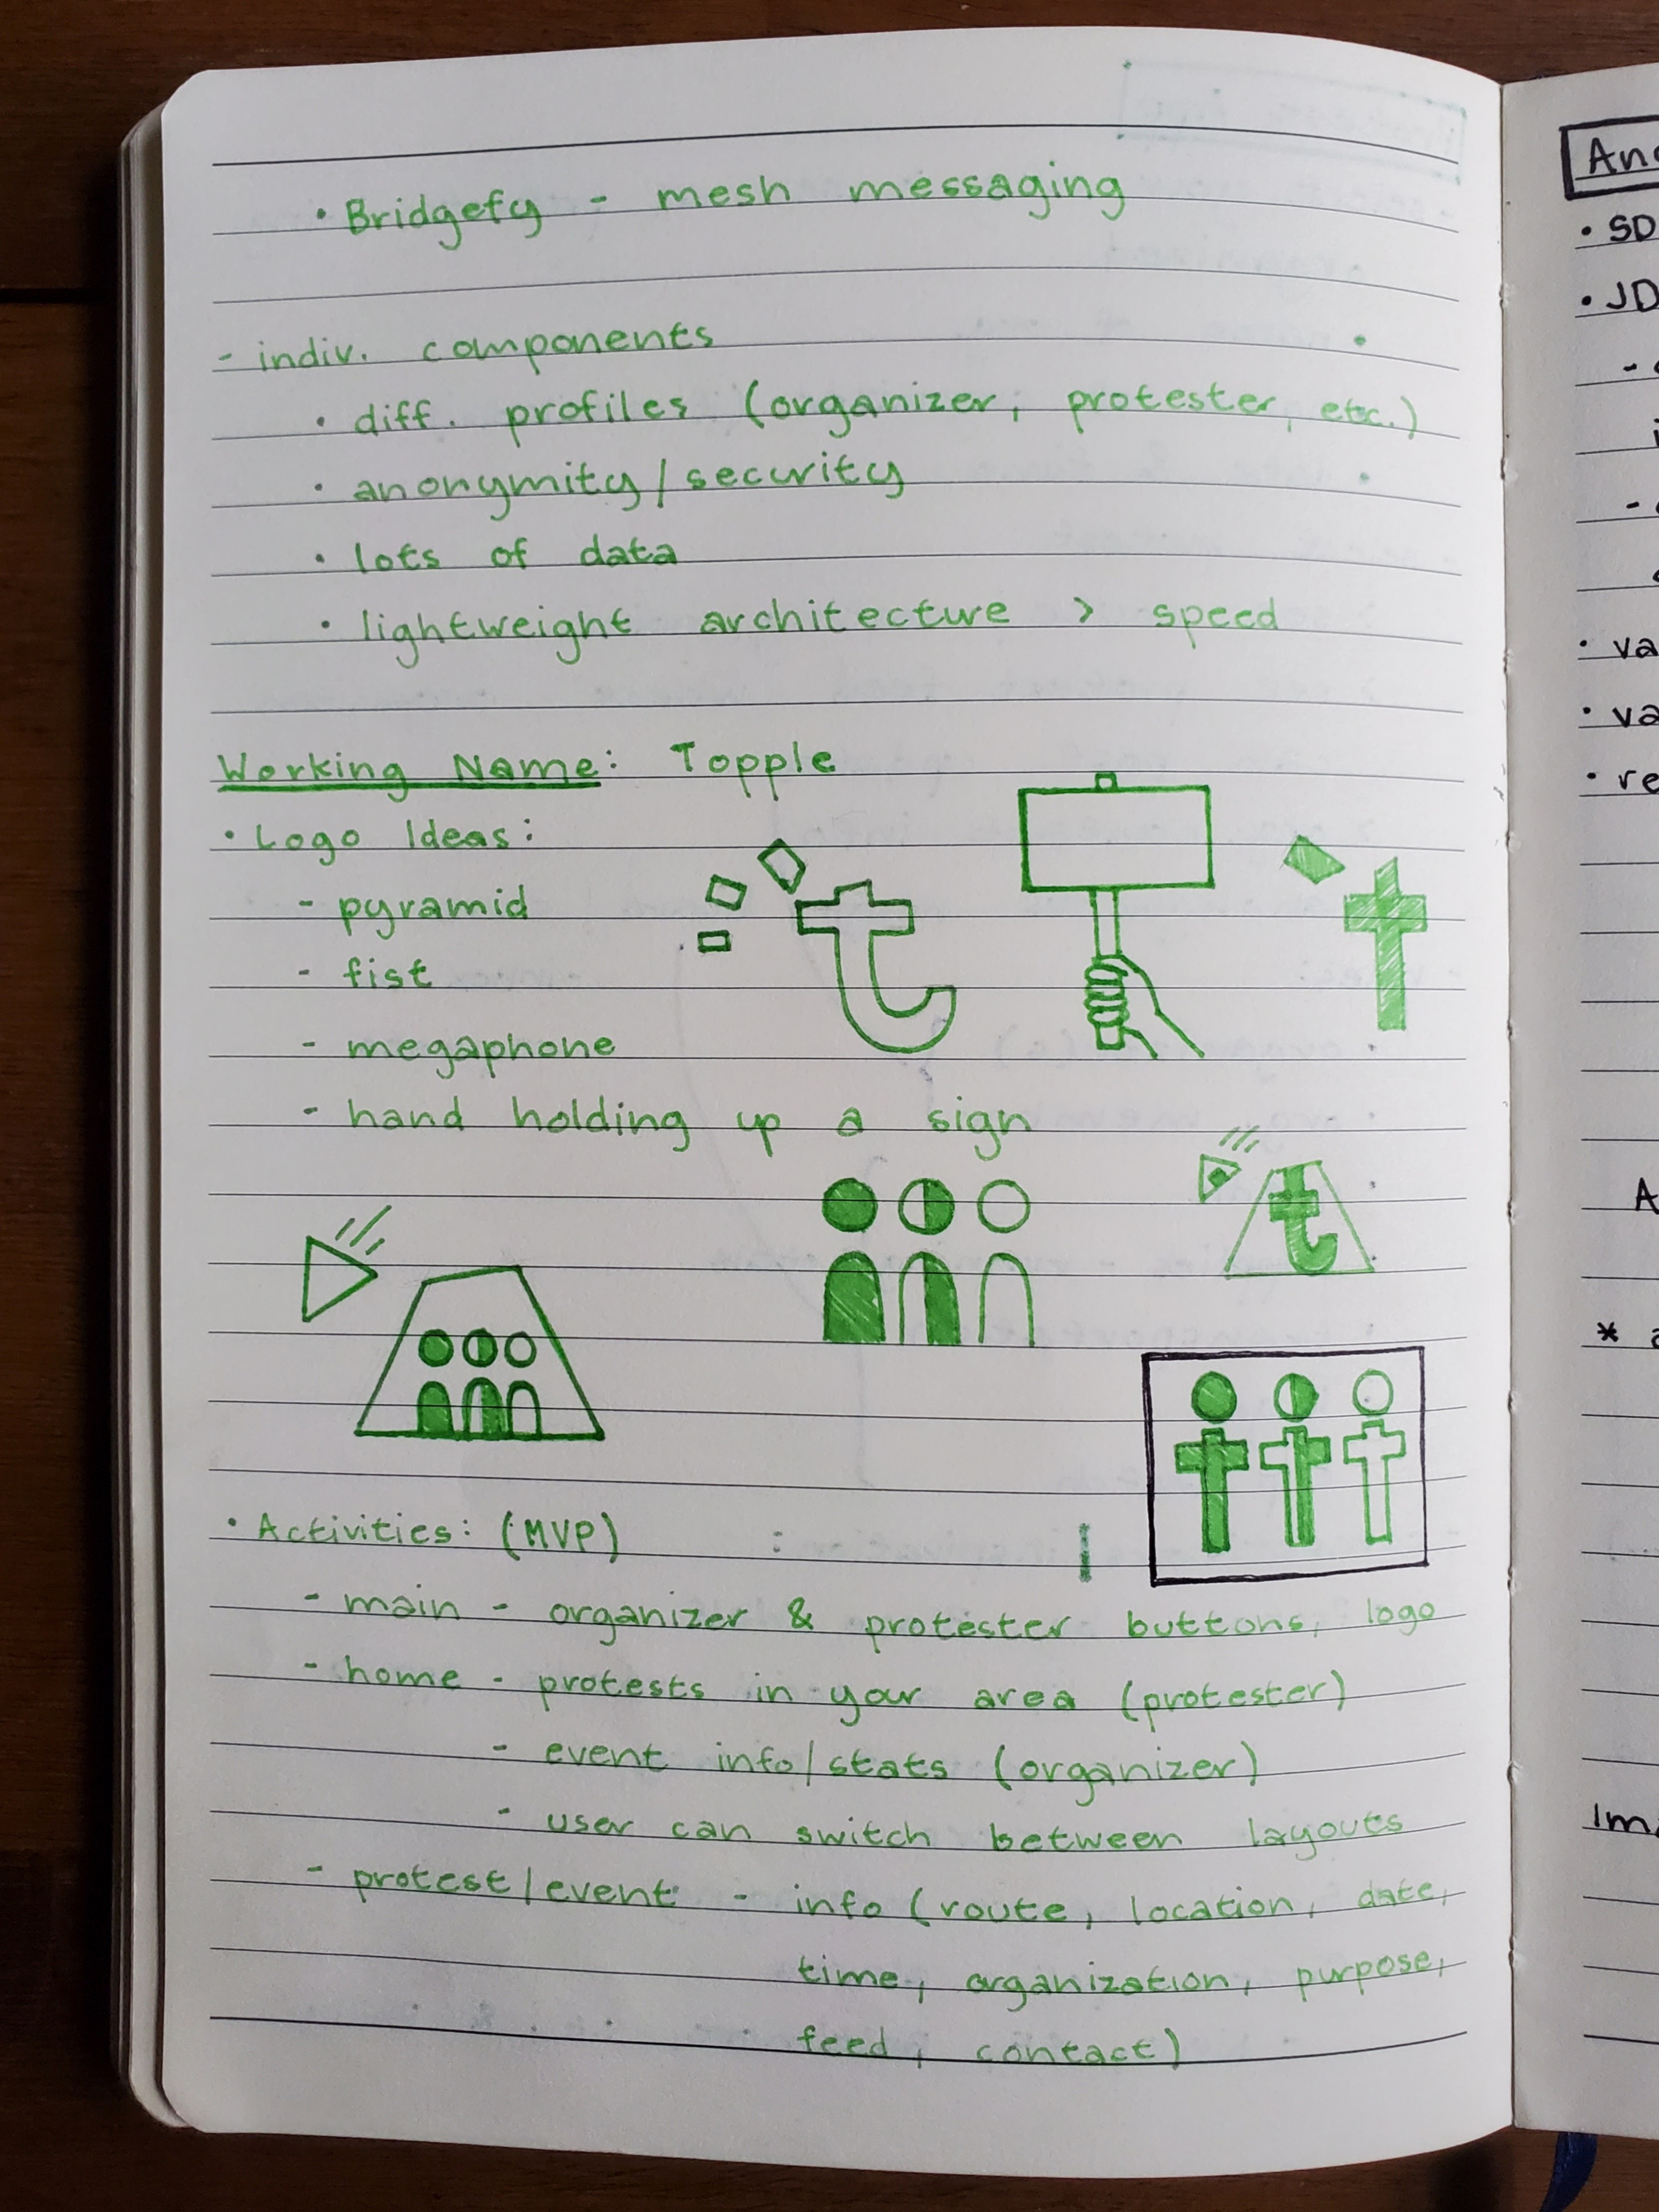 • Bridgefy - mesh messaging
- indiv. components
• diff. profiles (organizer, protester, etc.)
• anonymity/security
• lots of data
• lightweight architecture > speed
Working Name: Topple
• Logo Ideas:
- pyramid
- fist
- megaphone
- hand holding up a sign
t
t
t
• Activities: (MVP)
- main - organizer & protester buttons, logo
- home - protests in your area (protester)
- event info/stats (organizer)
- user can switch between layouts
- protest/event - info (route, location, date,
time, organization, purpose,
feed, contact)
• SD
• JD
• va
• va
• re
A
*